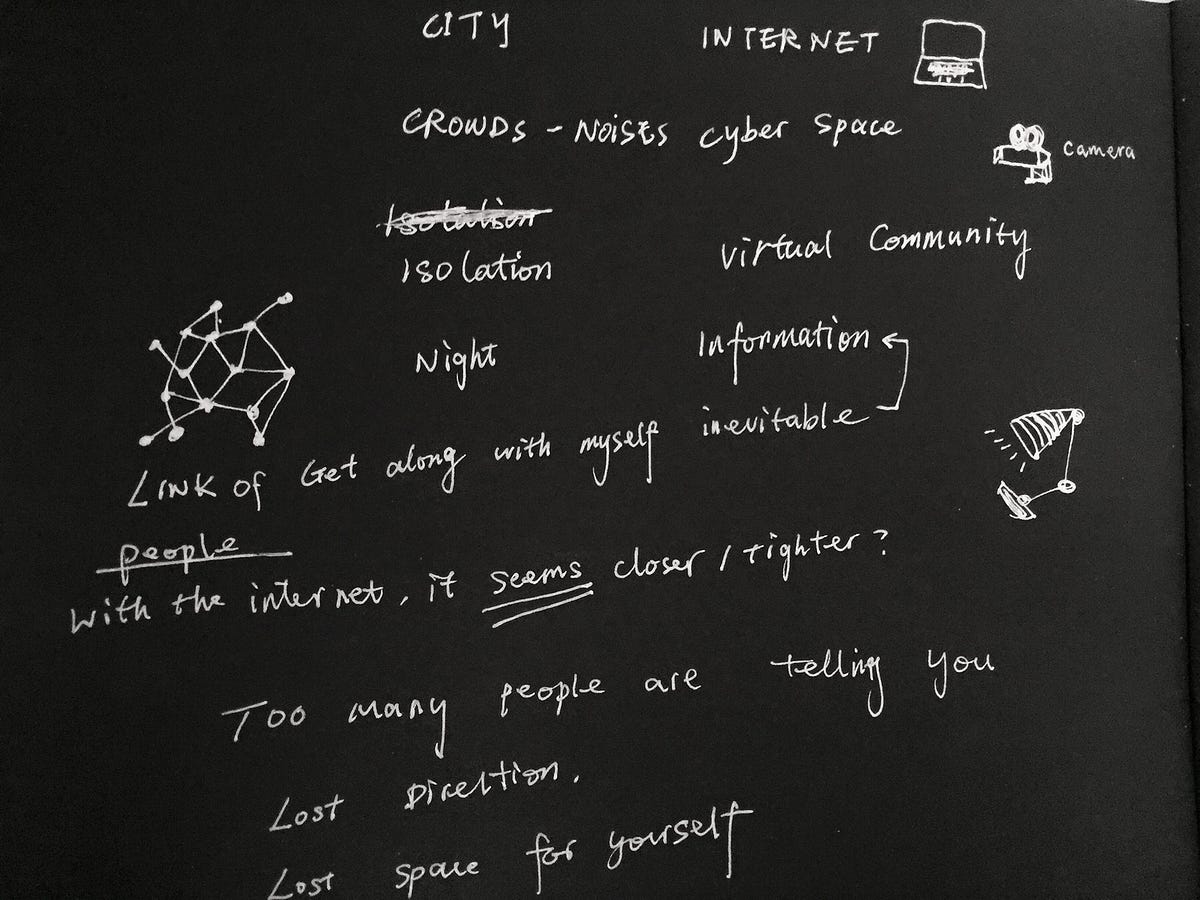 CITY INTERNET
CROWDS - NOISES cyber space
camera
Isolation
ISOlation virtual Community
Night Information
Get along with myself inevitable
LINK OF
people
With the internet, it seems closer / tighter?
Too many people are telling you
Lost Direction.
Lost space for yourself